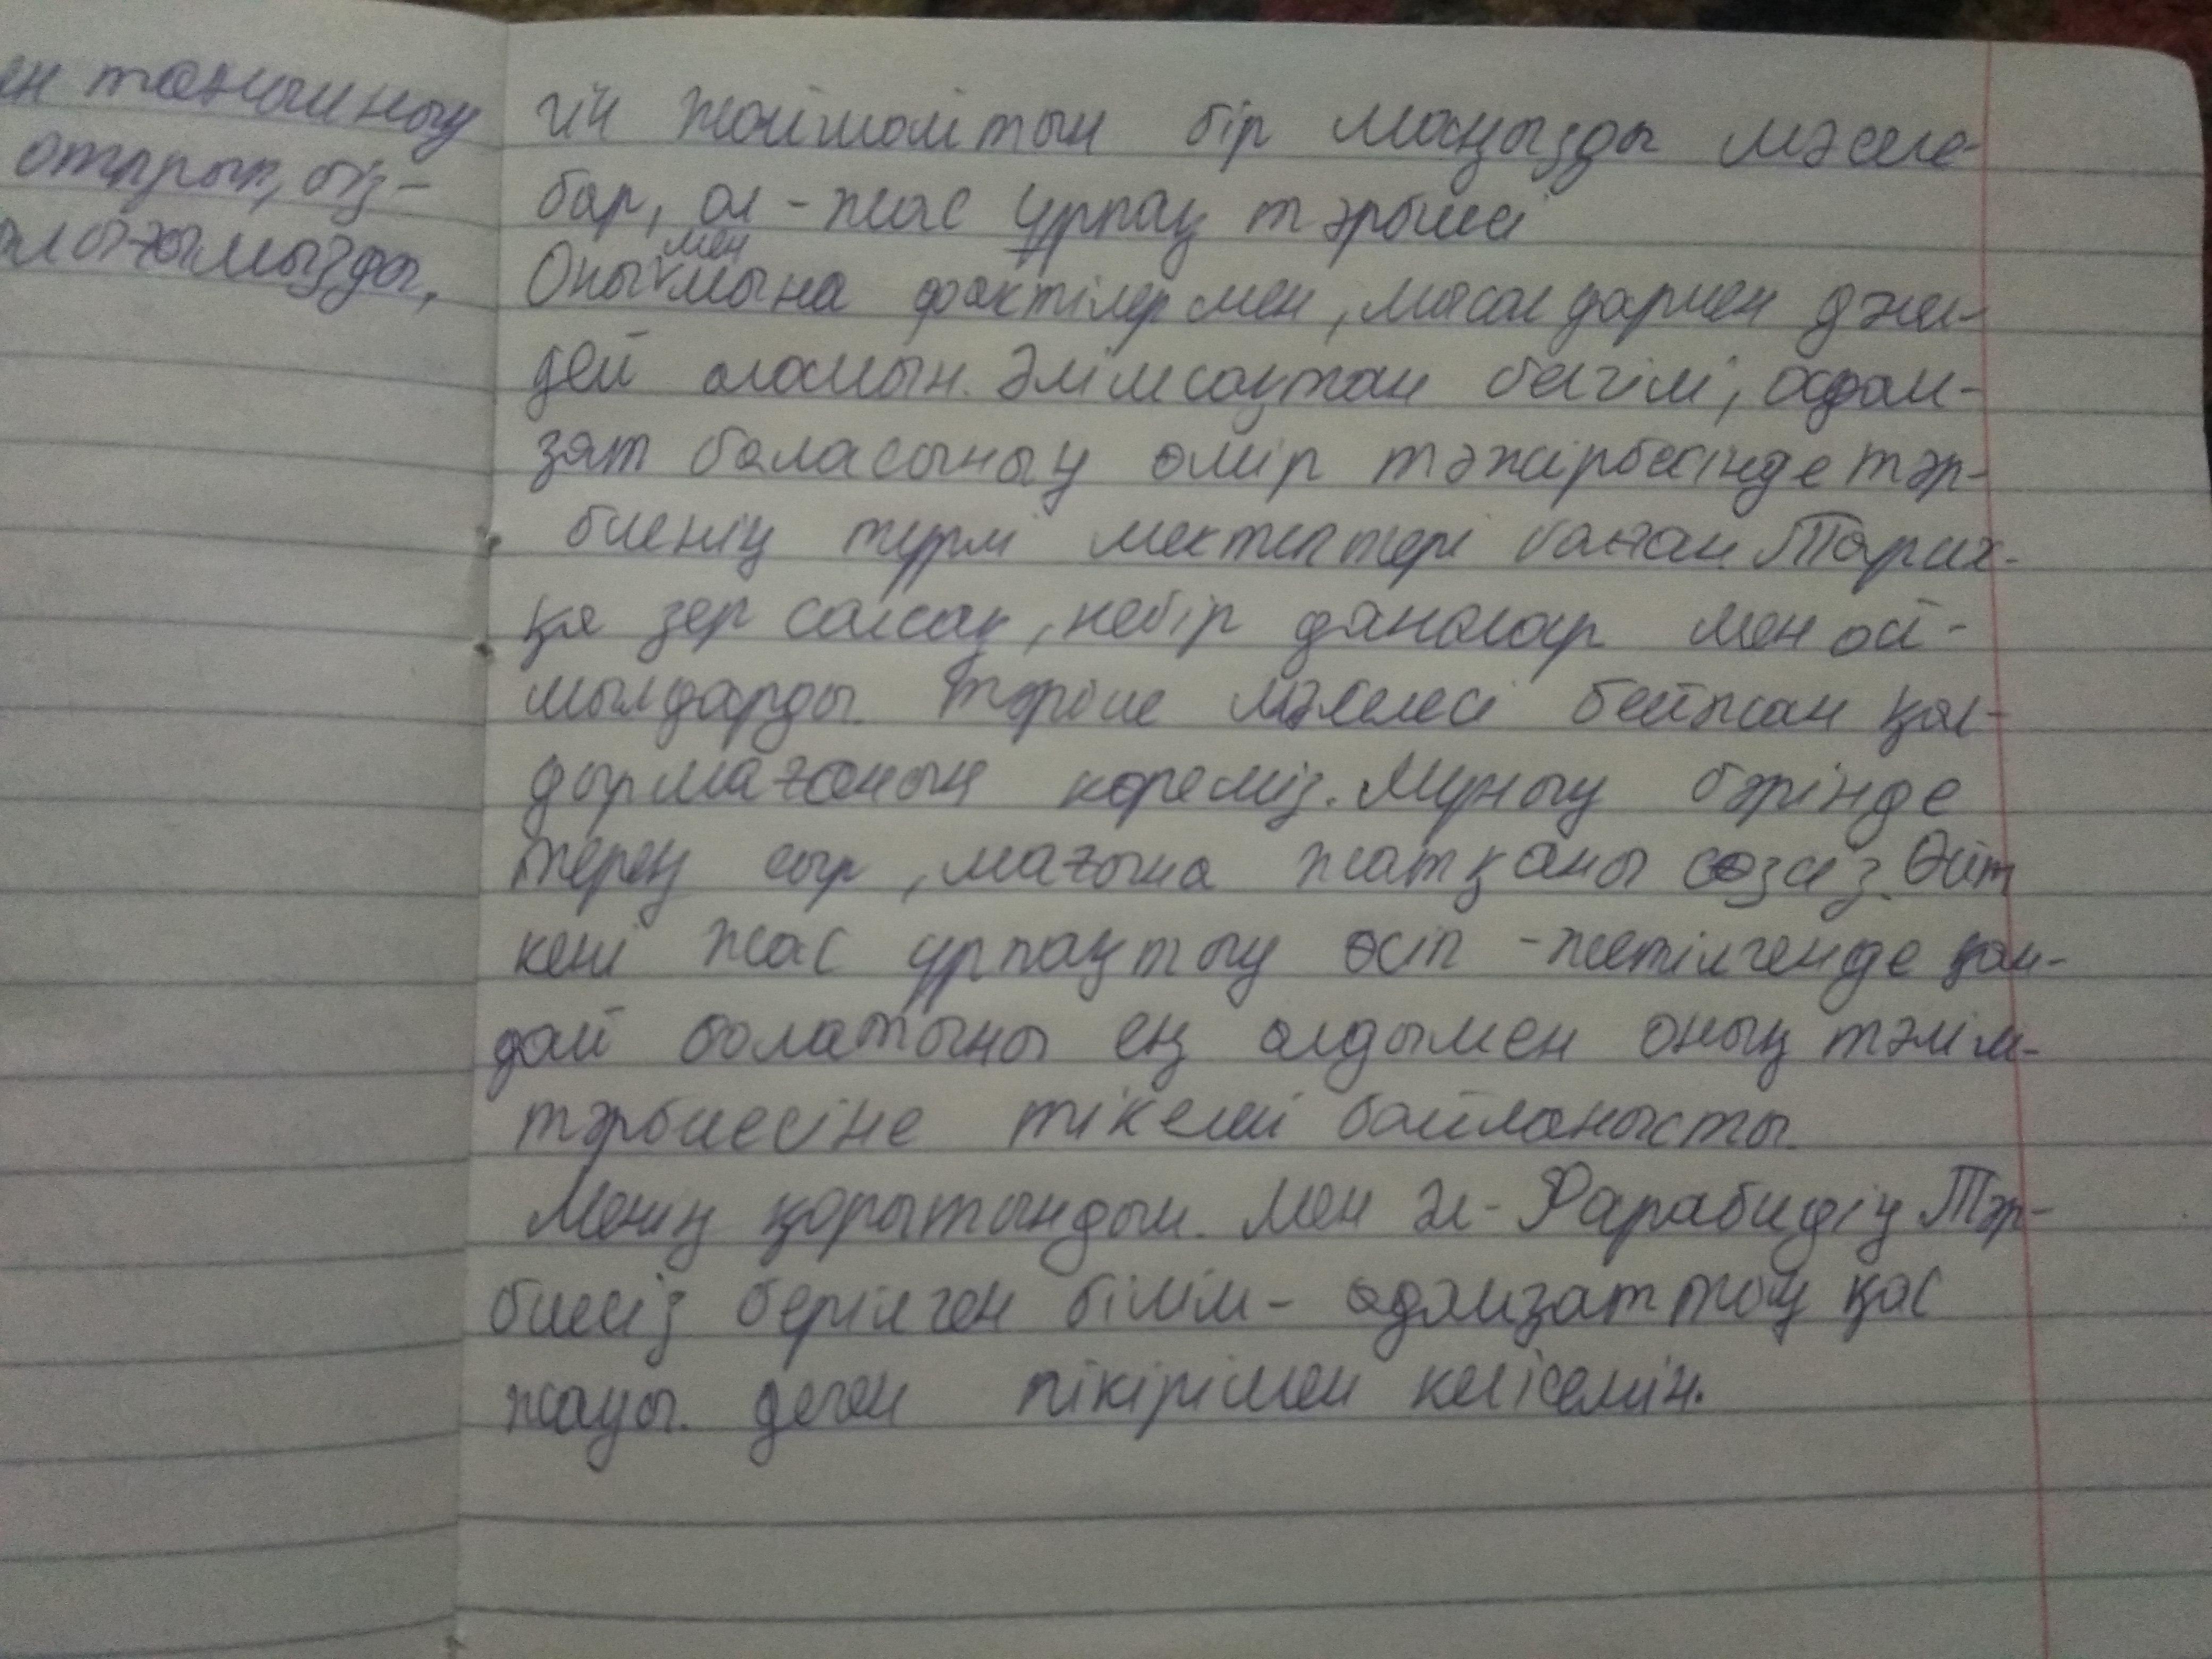 таның
отырып, біз-
мызды,
бір маңызды мәселе
бар, ол - жас ұрпақ тәрбиесі
Оны мен мына фактілермен, мысалдармен дәлел-
дей аламын. Әлімсақтан белгілі, адам-
зат баласының өмір тәжірбесінде тәр-
биенің түрлі мектептері болған. Тарих-
қа зер салсақ, небір даналар мен ой-
шылдарды тәрбие мәселесі бейжай қал-
дырмағанын көреміз. Мұның бәрінде
терең сыр, мағына жатқаны сөзсіз. Өйт
кені жас ұрпақтың өсіп - жетілгенде қан-
дай болатыны ең алдымен оның тәлім-
тәрбиесіне тікелей байланысты.
Менің қорытындым. Мен Әл- Фарабидің Тәр-
биесіз берілген білім - адамзаттың қас
жауы. деген пікірімен келісемін.